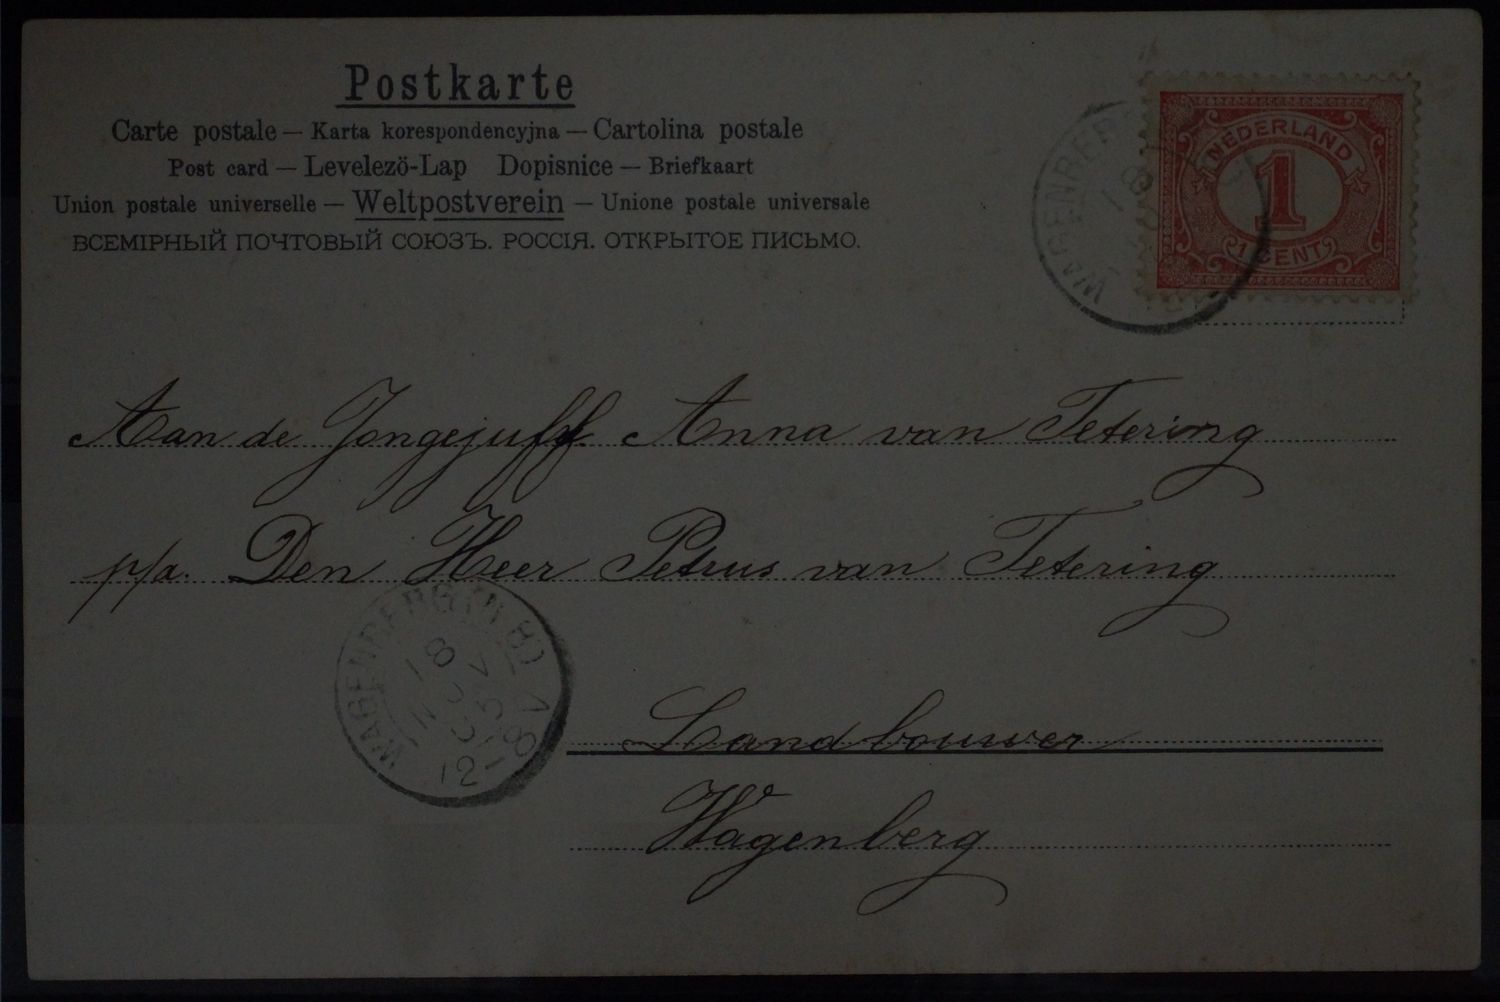 Postkarte
Carte postale — Karta korespondencyjna — Cartolina postale
Post card — Levelező-Lap Dopisnice — Briefkaart
Union postale universelle — Weltpostverein — Unione postale universale
ВСЕМІРНЫЙ ПОЧТОВЫЙ СОЮЗЪ. РОССІЯ. ОТКРЫТОЕ ПИСЬМО.
NEDERLAND
1
1 CENT
WAGENBERG
18
Aan de Jongejuff Anna van Tetering
p/a. Den Heer Petrus van Tetering
WAGENBERG (N B)
18
12-8V
Landbouwer
Wagenberg